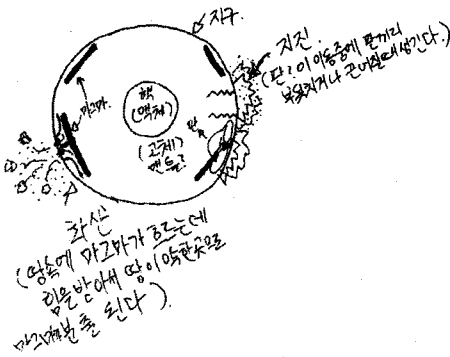 지구.
지진
(판:이 이동중에 판끼리
부딪치거나 끊어질때 생긴다.)
마그마
핵
(액체)
판
(고체)
맨틀
화산
(땅속에 마그마가 흐르는데
힘을 받아서 땅이 약한곳으로
분출 된다).